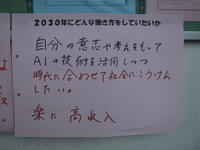 2030年にどんな働き方をしていたいか
自分の意志や考えをもって
AIの技術を活用しつつ
時代に合わせて社会にこうけん
したい。
楽に高収入